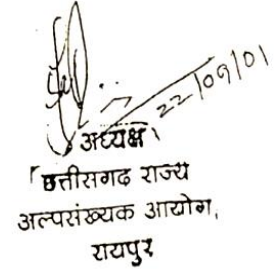 22/09/01
अध्यक्ष
छत्तीसगढ राज्य
अल्पसंख्यक आयोग,
रायपुर